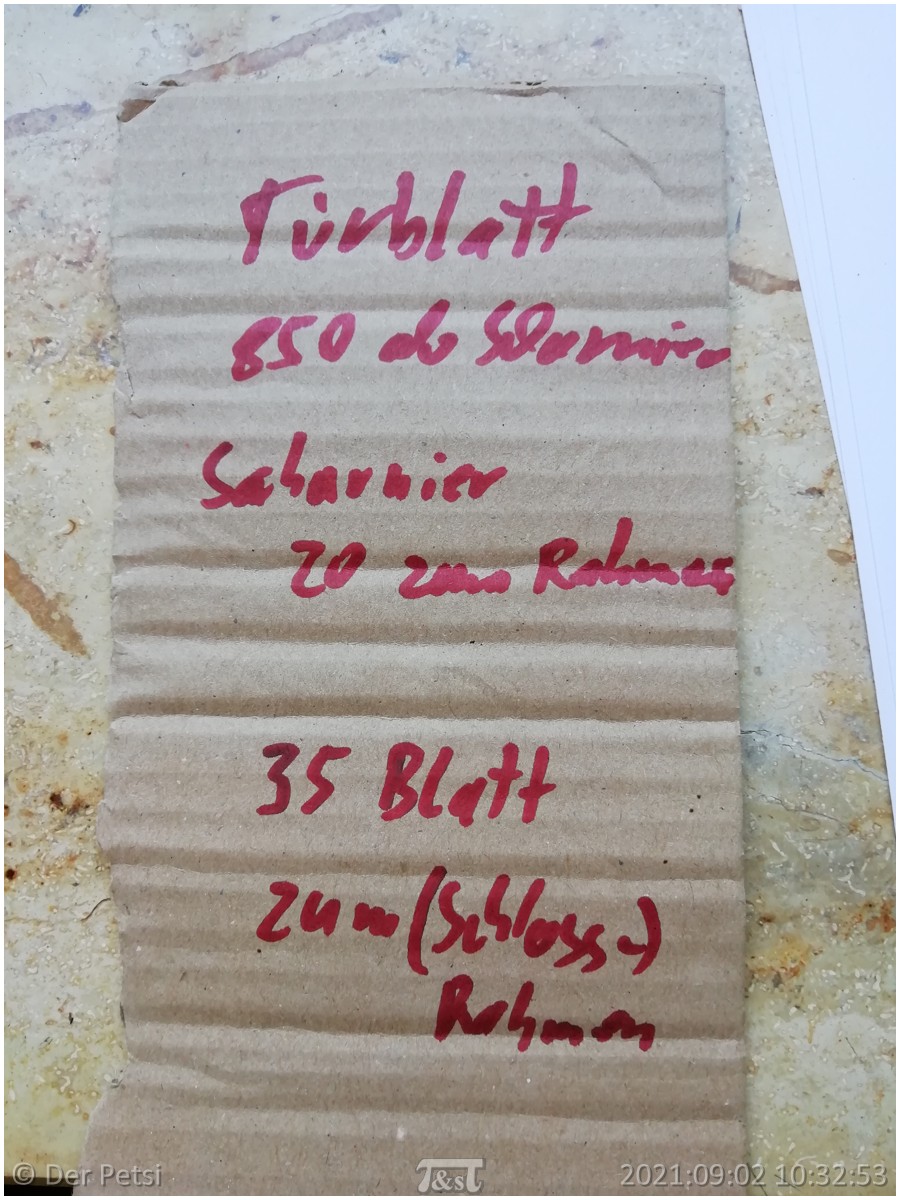 Türblatt
850 ab Scharnier
Scharnier
20 zum Rahmen
35 Blatt
zum (Schloss-)
Rahmen
© Der Petsi
T&ST
2021:09:02 10:32:53